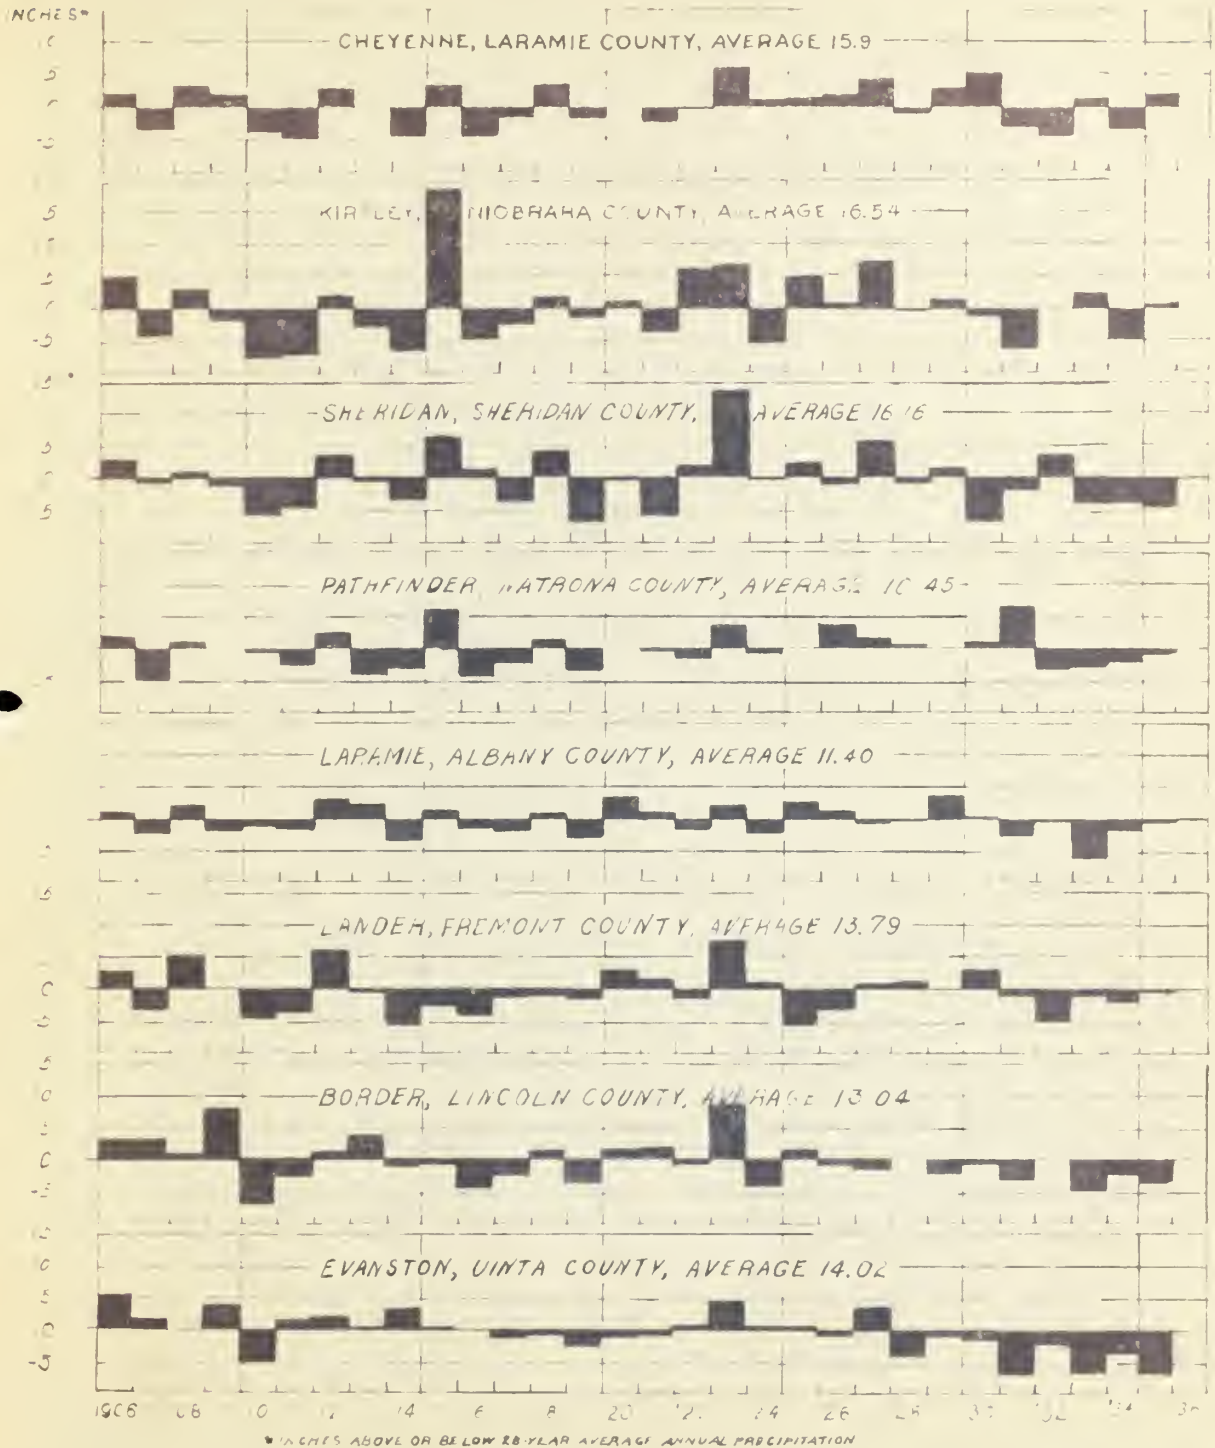 INCHES*
CHEYENNE, LARAMIE COUNTY, AVERAGE 15.9
5
5
COUNTY, AVERAGE 16.54
5
-5
SHERIDAN, SHERIDAN COUNTY, AVERAGE 16 16
5
5
PATHFINDER, NATRONA COUNTY, AVERAGE 10 45
LARAMIE, ALBANY COUNTY, AVERAGE 11.40
5
LANDER, FREMONT COUNTY, AVERAGE 13.79
0
5
5
0
BORDER, LINCOLN COUNTY, AVERAGE 13 04
0
0
EVANSTON, UINTA COUNTY, AVERAGE 14.02
5
0
-5
1906 08 10 14 6 8 20 24 26 34
* INCHES ABOVE OR BELOW 28-YEAR AVERAGE ANNUAL PRECIPITATION